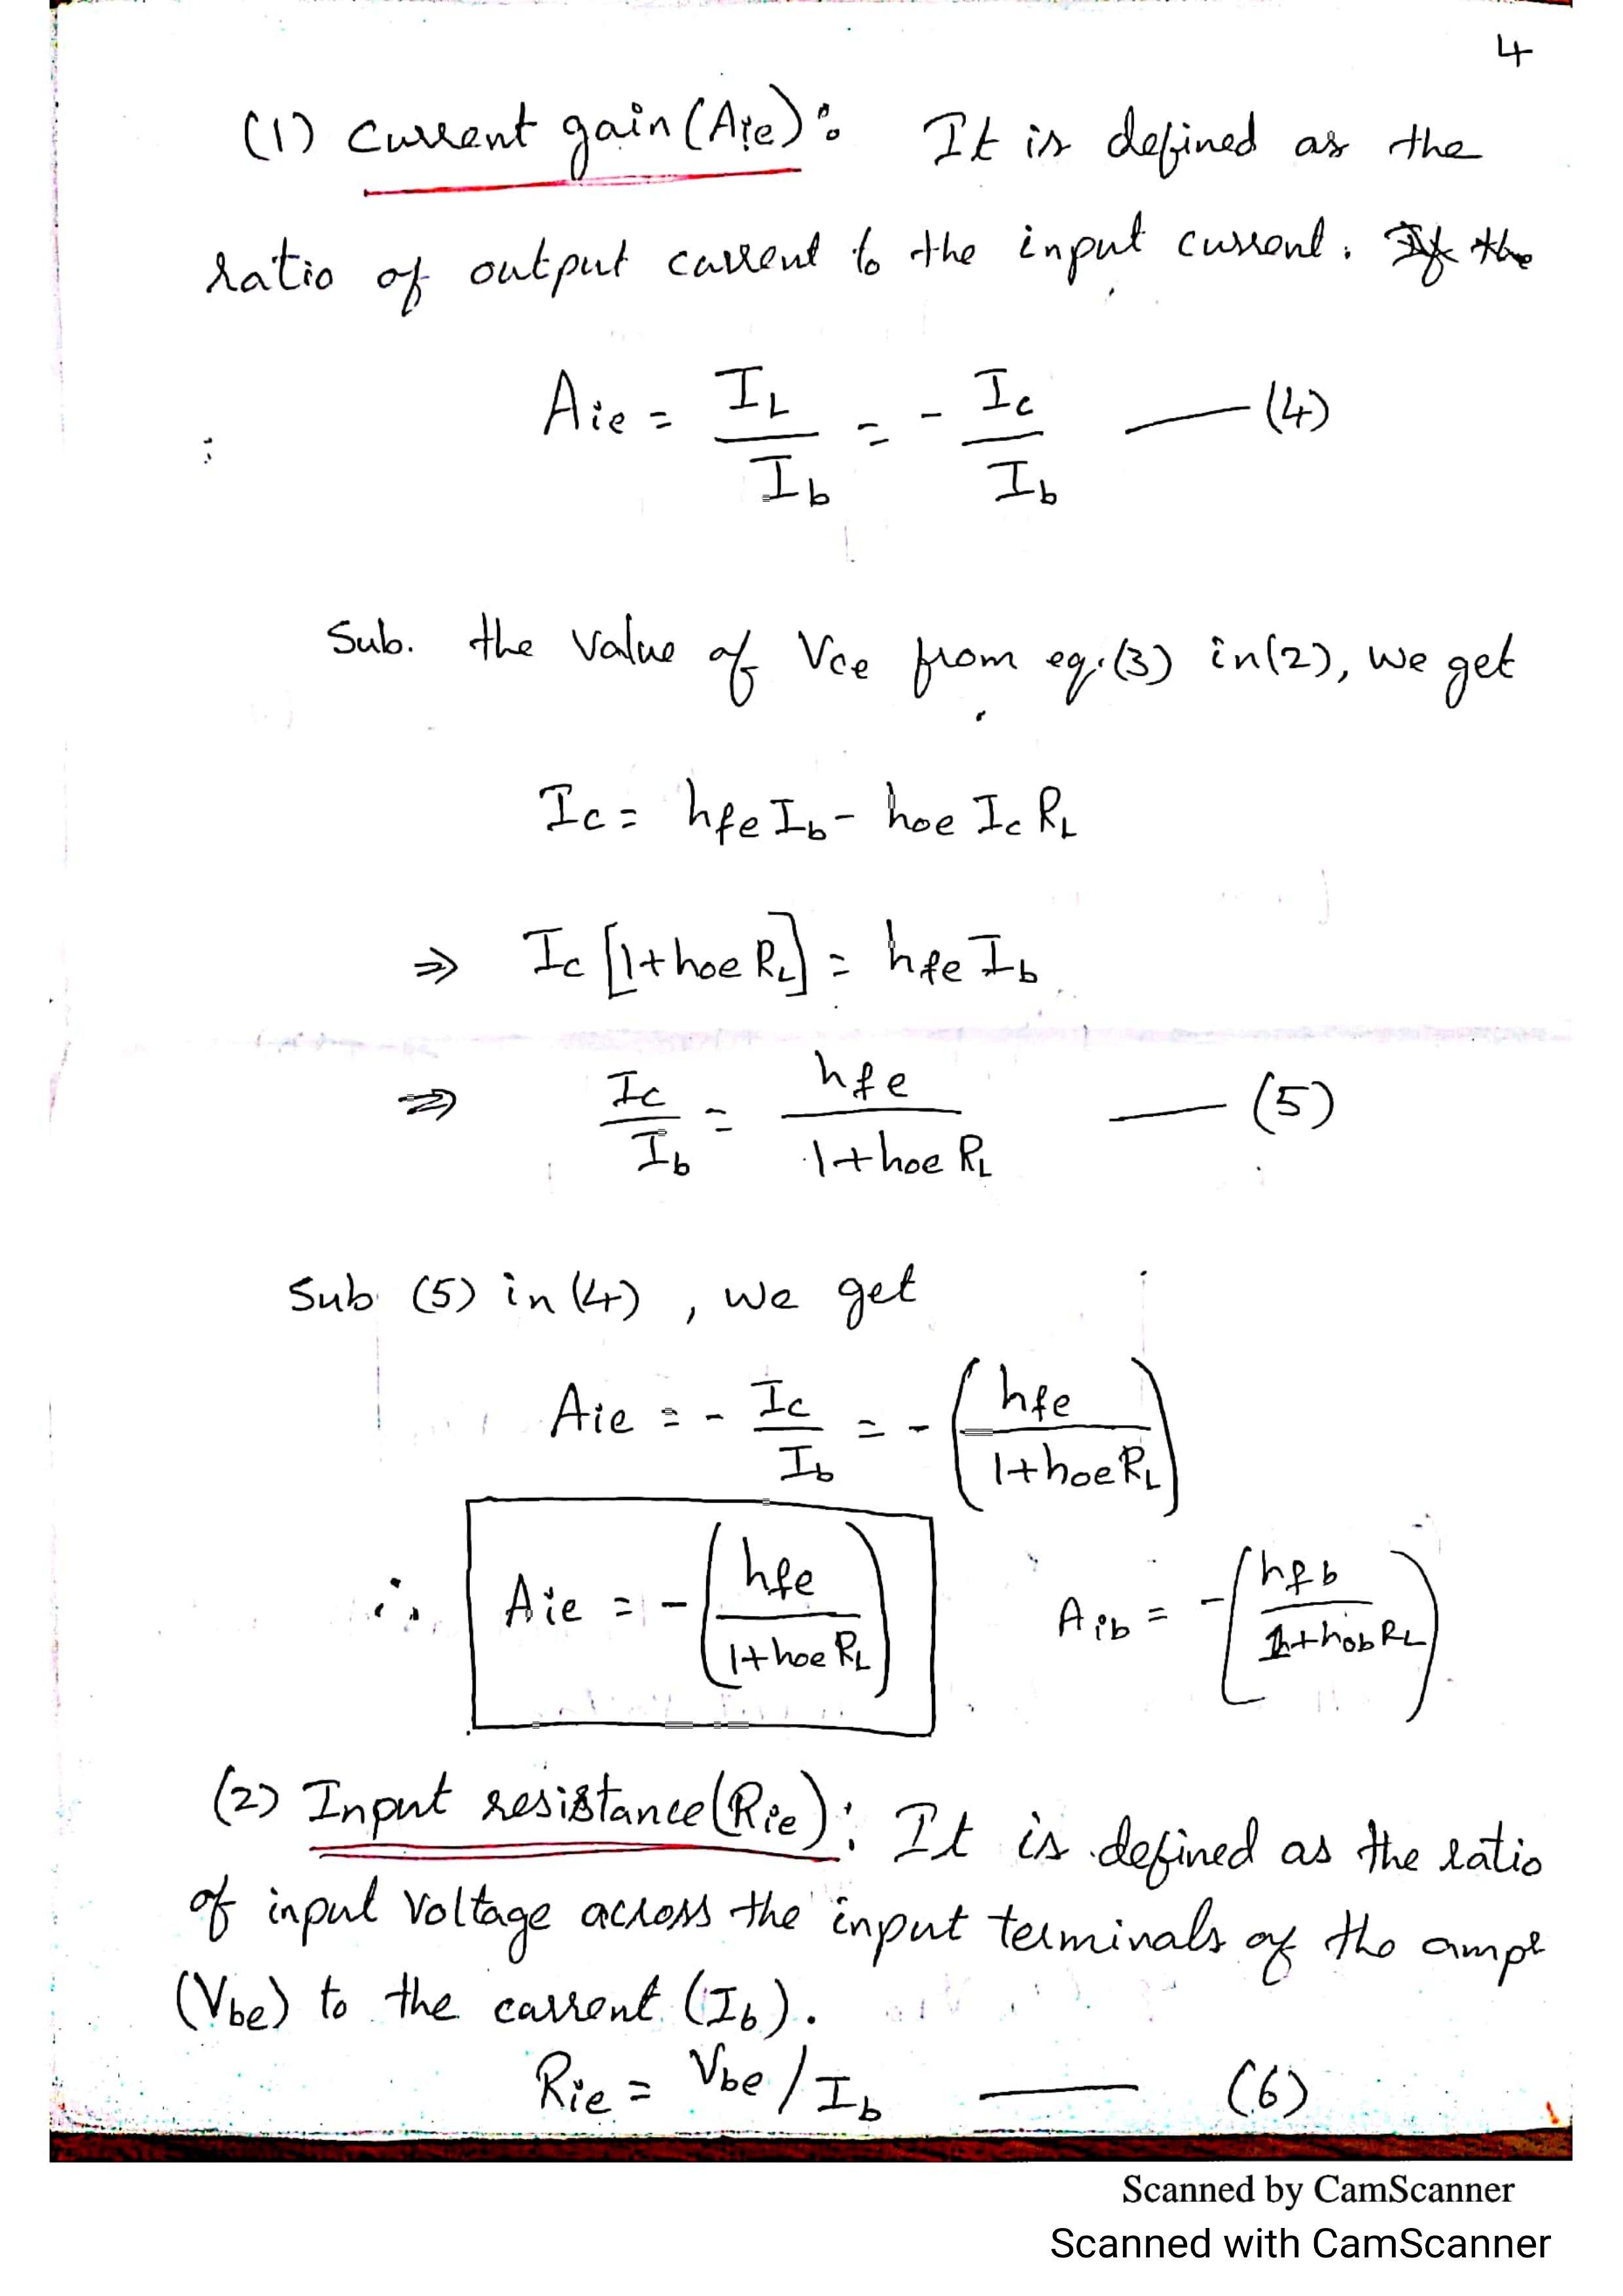 4
(1) Current gain (Aie): It is defined as the
ratio of output current to the input current. If the
Aie = IL / Ib = - Ic / Ib — (4)
Sub. the value of Vce from eq.(3) in (2), we get
Ic = hfe Ib - hoe Ic RL
⇒ Ic [1+hoe RL] = hfe Ib
⇒ Ic / Ib = hfe / 1+hoe RL — (5)
Sub (5) in (4), we get
Aie = - Ic / Ib = - (hfe / 1+hoe RL)
∴ Aie = - (hfe / 1+hoe RL) Aib = - (hfb / 1+hob RL)
(2) Input resistance (Rie): It is defined as the ratio
of input voltage across the input terminals of the ampr
(Vbe) to the current (Ib).
Rie = Vbe / Ib — (6)
Scanned by CamScanner
Scanned with CamScanner